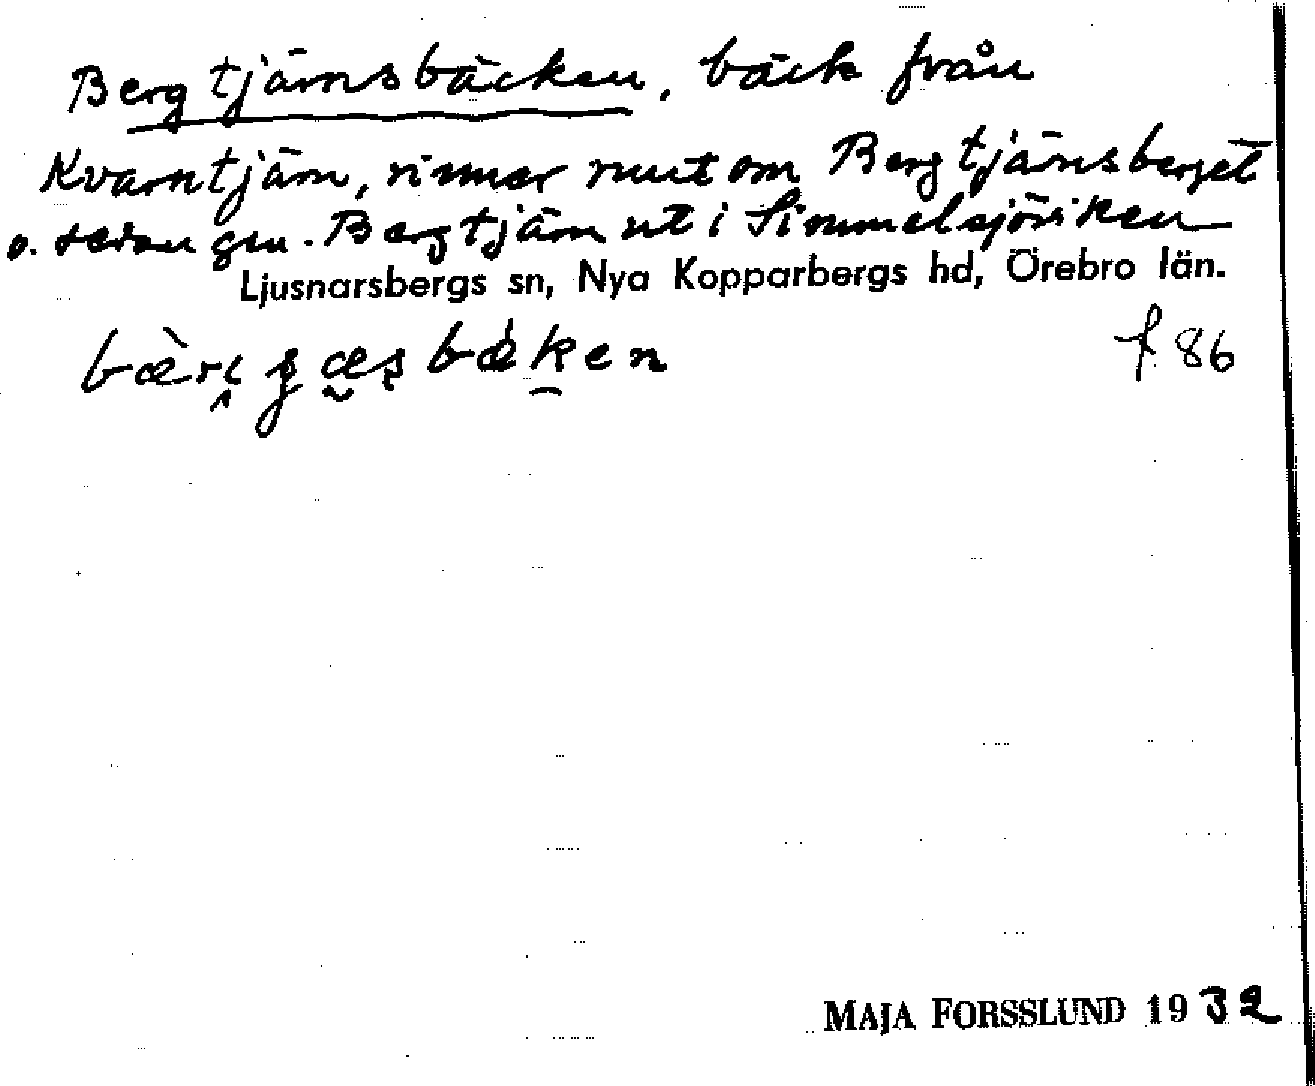 Bergtjärnsbäcken, bäck från
Kvarntjärn, rinner runt om Bergtjärnsberget
o. sedan gm. Bergtjärn ut i Simmelsjöviken
Ljusnarsbergs sn, Nya Kopparbergs hd, Örebro län.
f 86
MAJA FORSSLUND 1932